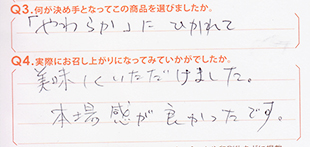 Q3.何が決め手となってこの商品を選びましたか。
「やわらか」にひかれて
Q4.実際にお召し上がりになってみていかがでしたか。
美味しくいただけました。
本場感が良かったです。